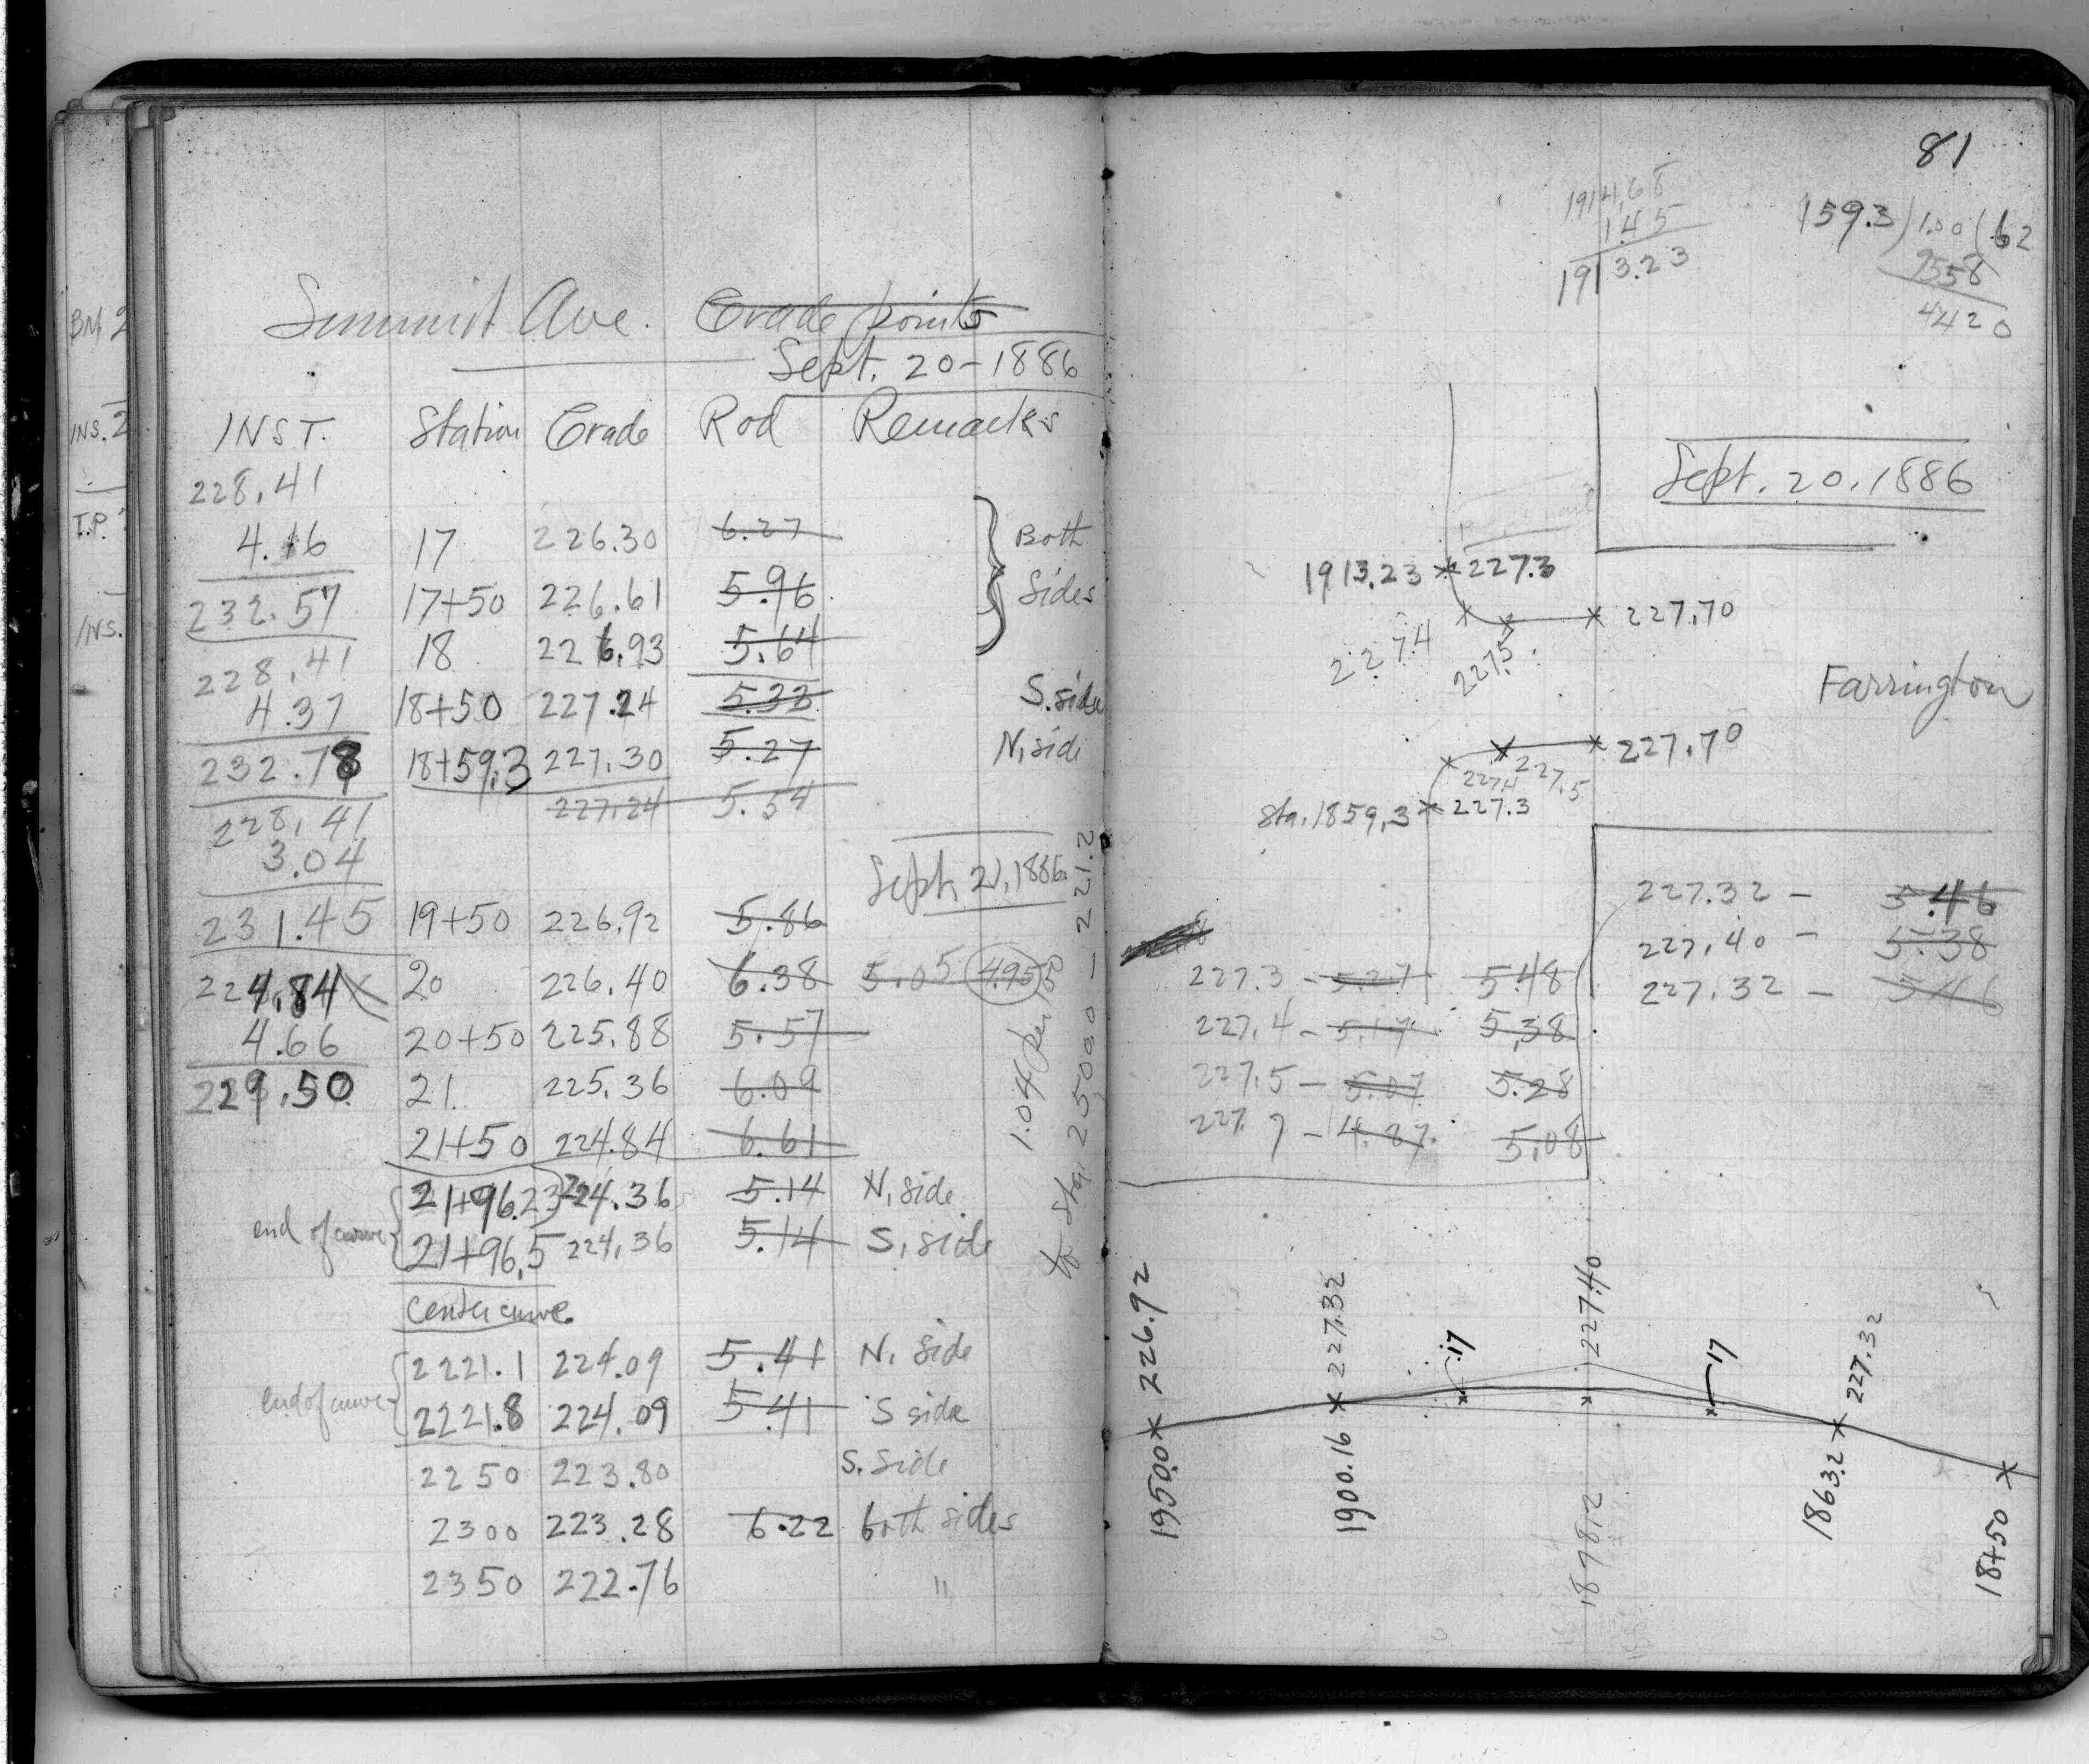 BM 2
INS. 2
T.P.
INS.
Summit Ave. Grade points
Sept. 20-1886
INST. Station Grade Rod Remarks
228.41
4.16 17 226.30 6.27 Both
232.57 17+50 226.61 5.96 Sides
228.41 18 226.93 5.64
4.37 18+50 227.24 5.33 S. side
232.78 18+59.3 227.30 5.27 N. side
228.41 227.24 5.54
3.04
Sept. 21, 1886
231.45 19+50 226.92 5.86
224.84 20 226.40 6.38 5.05 4.95
4.66 20+50 225.88 5.57
229.50 21 225.36 6.09
21+50 224.84 6.61
1.04 per
to Sta. 2500.0 - 221.2
end of curve 21+96.23 224.36 5.14 N. side
21+96.5 224.36 5.14 S. side
Center curve
end of curve 2221.1 224.09 5.41 N. side
2221.8 224.09 5.41 S side
2250 223.80 S. side
2300 223.28 6.22 both sides
2350 222.76 "
81
1914.68
1.45
1913.23
159.3) 1.00 (62
9558
4420
Sept. 20, 1886
1913.23 227.3
227.4 227.5 227.70
Farrington
227.70
227.4 227.5
Sta. 1859.3 227.3
227.32 - 5.46
227.40 - 5.38
227.32 - 5.46
227.3 - 5.27 5.48
227.4 - 5.17 5.38
227.5 - 5.07 5.28
227.7 - 4.87 5.08
226.92 227.32 .17 227.40 .17 227.32
1950.0 1900.16 1863.2 18+50